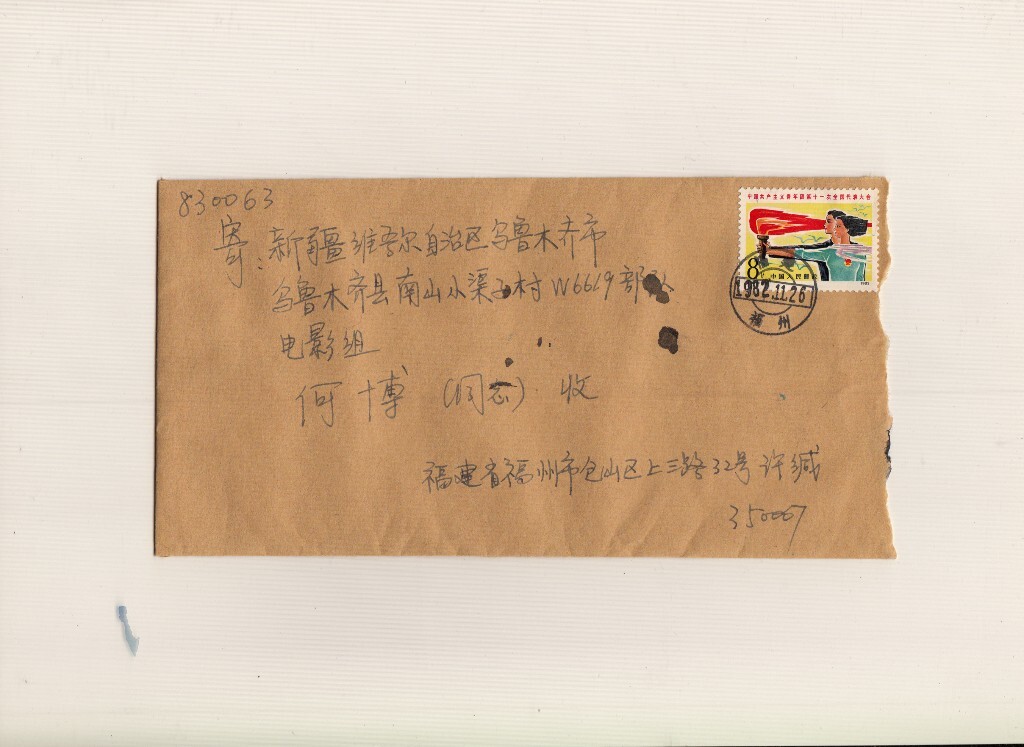 830063
中国共产主义青年团第十一次全国代表大会
8分 中国人民邮政
1982
1982.11.26
福州
寄：新疆维吾尔自治区乌鲁木齐市
乌鲁木齐县南山小渠子村W6619部队
电影组
何博（同志）收
福建省福州市仓山区上三路32号许缄
350007